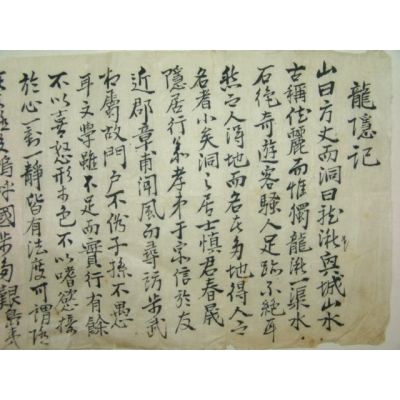 龍隱記
山曰方丈而洞曰龍湫與城山水
古稱佳麗而惟獨龍湫一渠水
石絶奇遊客騷人足跡不絶耳
然 人得地而名 多地得人而
名者小矣洞之居士愼君春晟
隱居行義孝弟于宗信於友
近郡章甫聞風而尋訪步武
相屬故門戶不俗子孫不愚
耳文學雖不足而實行有餘
不以喜怒形於色不以嗜慾接
於心一動一靜皆有法度可謂隱
嗚呼國步 艱島夷